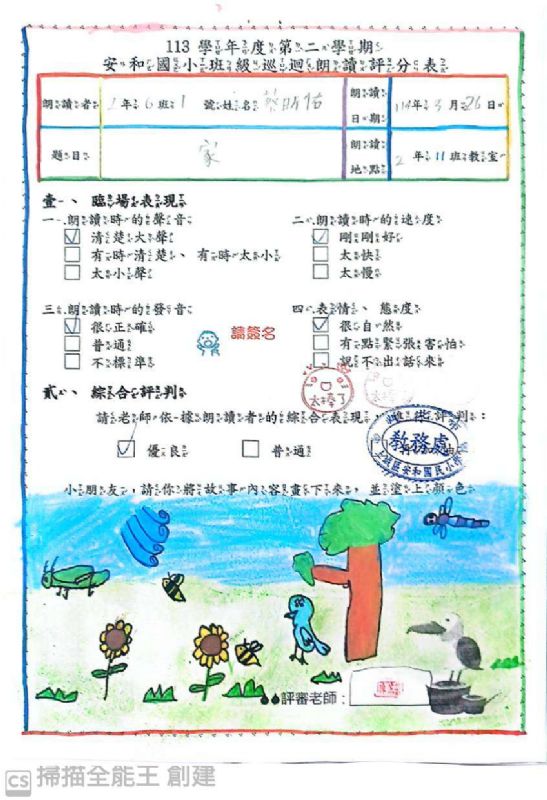 113 學年度第二學期
安和國小班級巡迴朗讀評分表
朗讀者 2年6班1號姓名 朗讀日期 114年3月26日
題目 家 朗讀地點 2年11班教室
壹、臨場表現
一、朗讀時的聲音 二、朗讀時的速度
清楚大聲 剛剛好
有時清楚、有時太小 太快
太小聲 太慢
三、朗讀時的發音 四、表情、態度
很正確 很自然
普通 有點緊張害怕
不標準 說不出話來
請簽名
太棒了
貳、綜合評判
請老師依據朗讀者的綜合表現，評判：
優良 普通
教務處
安和國民小學
小朋友，請你將故事內容畫下來，並塗上顏色
評審老師：
CS 掃描全能王 創建